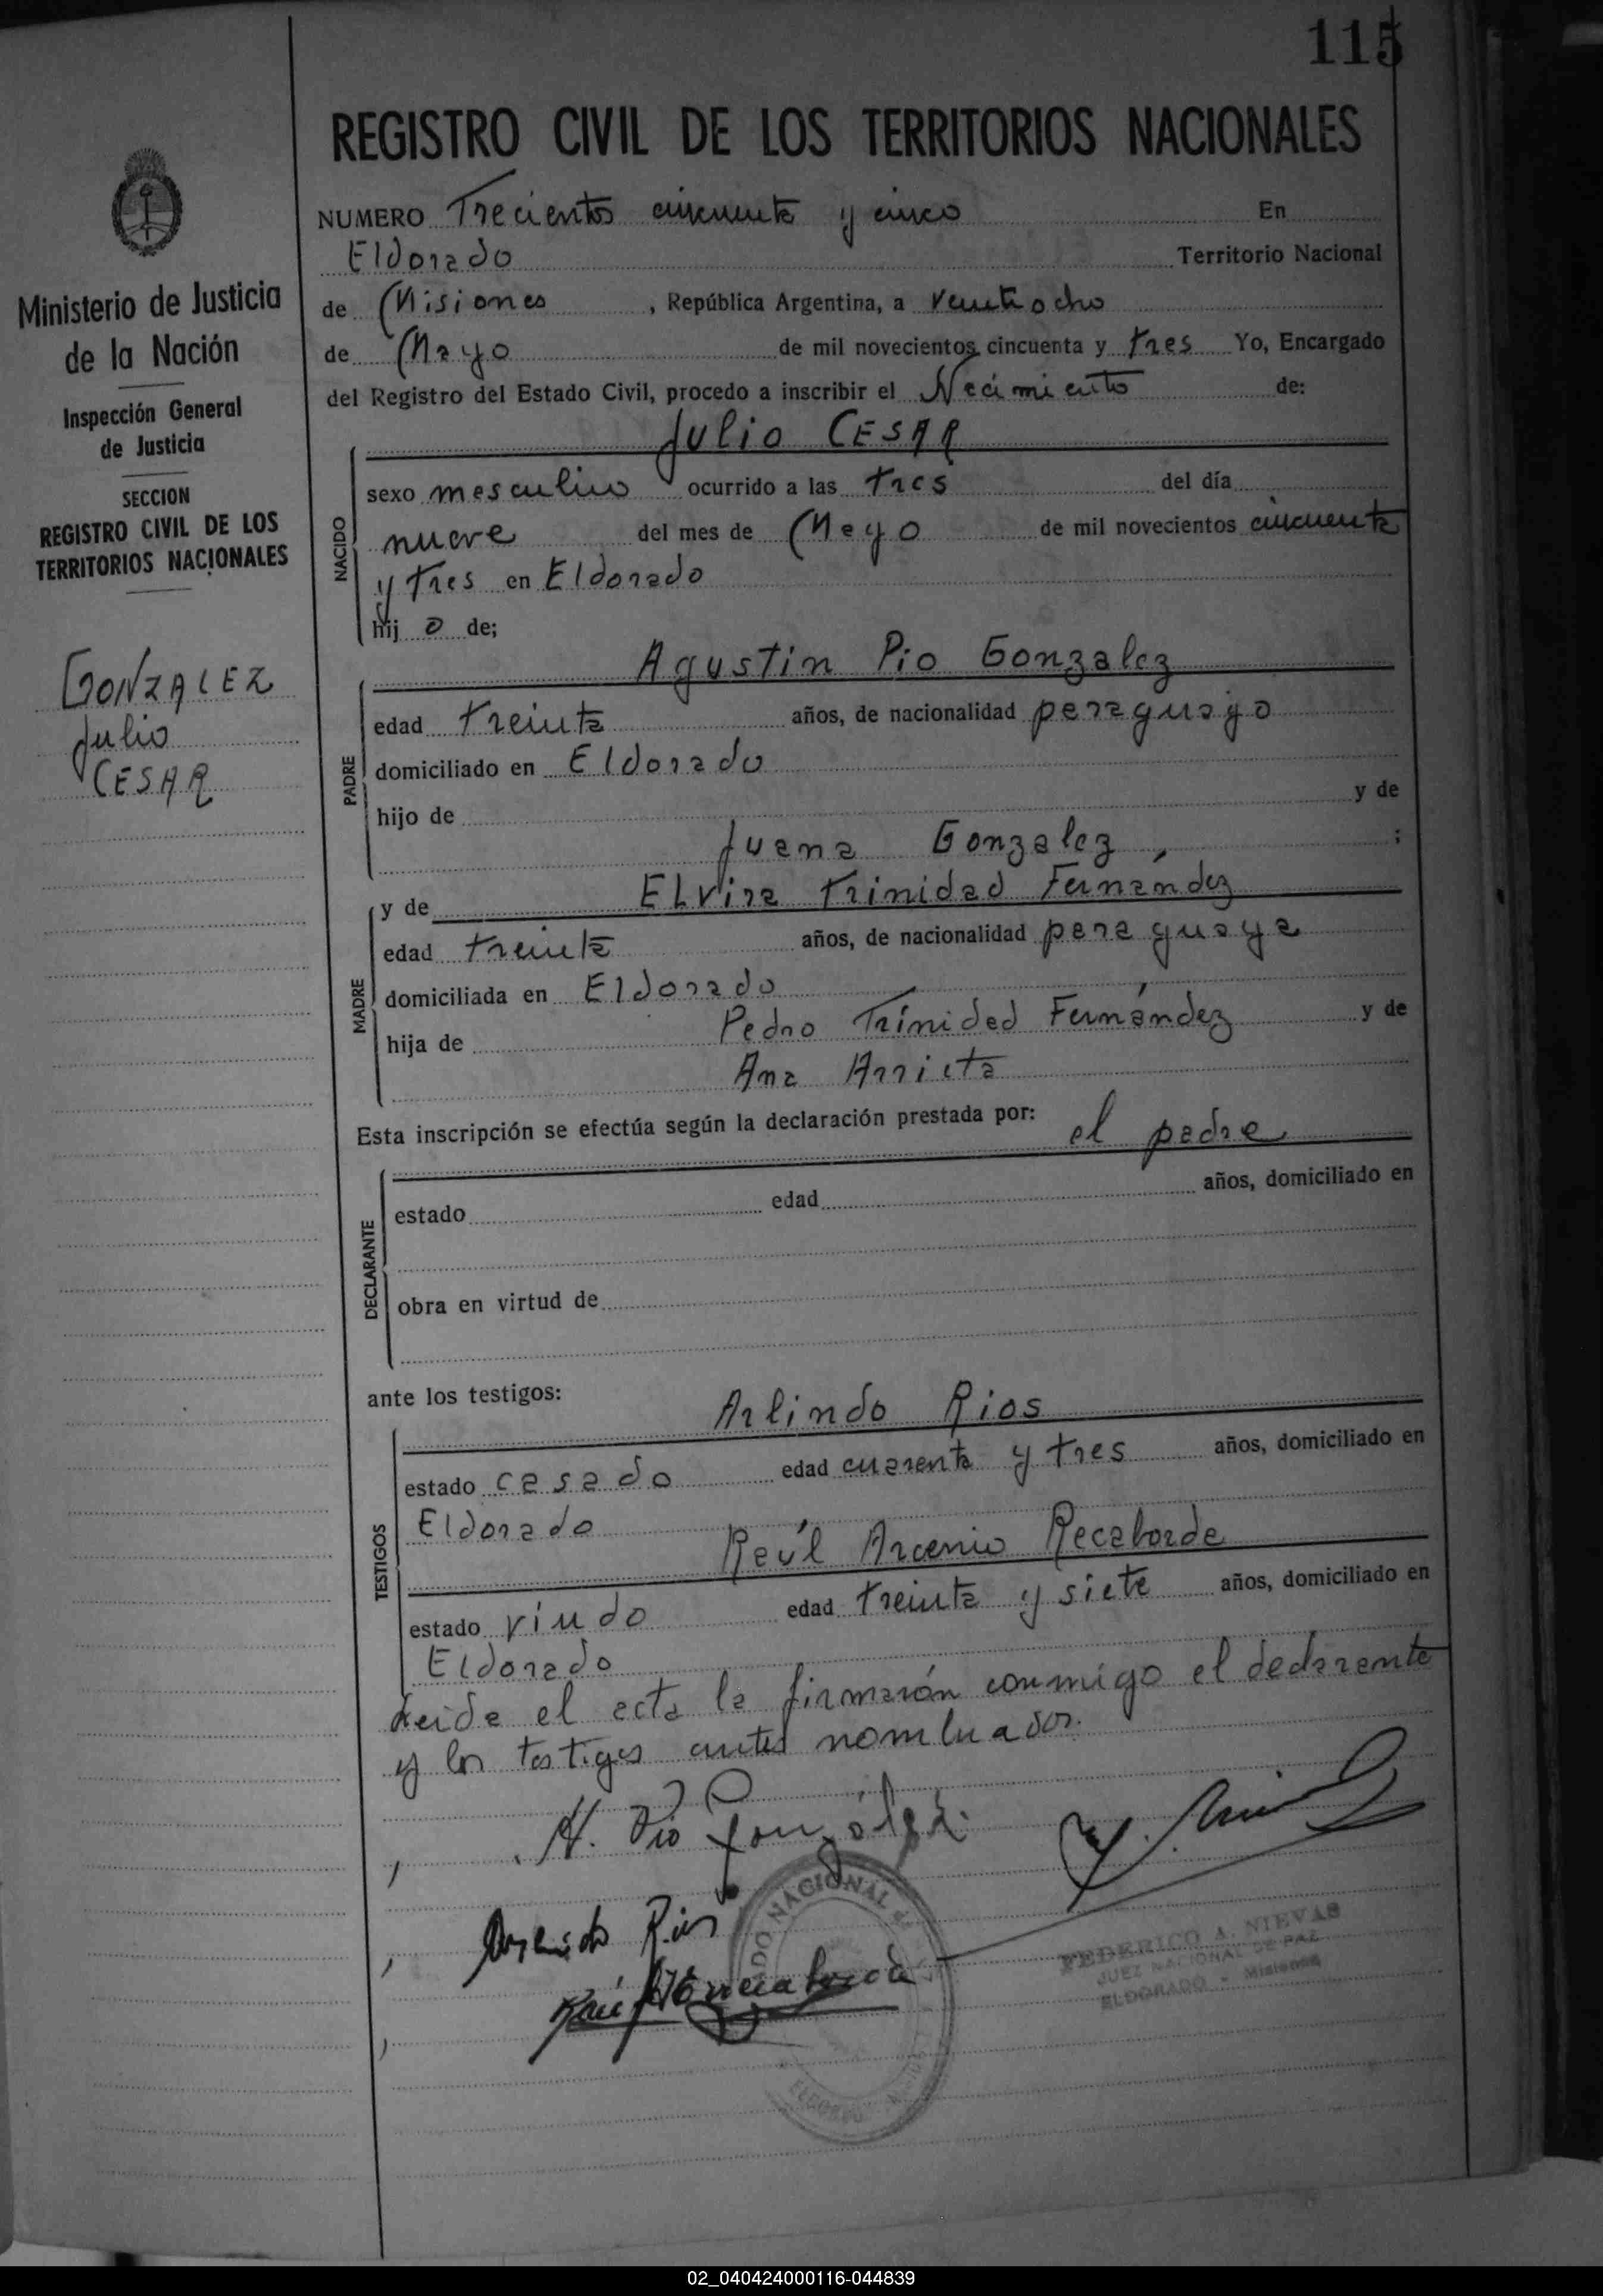 115
REGISTRO CIVIL DE LOS TERRITORIOS NACIONALES
Ministerio de Justicia
de la Nación
Inspección General
de Justicia
SECCION
REGISTRO CIVIL DE LOS
TERRITORIOS NACIONALES
GONZALEZ
Julio
CESAR
NUMERO Trecientos cincuenta y cinco En
Eldorado Territorio Nacional
de Misiones, República Argentina, a veintiocho
de Mayo de mil novecientos cincuenta y tres Yo, Encargado
del Registro del Estado Civil, procedo a inscribir el Nacimiento de:
Julio CESAR
NACIDO
sexo masculino ocurrido a las tres del día
nueve del mes de Mayo de mil novecientos cincuenta
y tres en Eldorado
hij o de;
Agustin Pio Gonzalez
PADRE
edad treinta años, de nacionalidad paraguayo
domiciliado en Eldorado
hijo de y de
Juana Gonzalez ;
y de Elvira Trinidad Fernández
MADRE
edad treinta años, de nacionalidad paraguaya
domiciliada en Eldorado
hija de Pedro Trinidad Fernández y de
Ana Arrieta
Esta inscripción se efectúa según la declaración prestada por: el padre
DECLARANTE
estado edad años, domiciliado en
obra en virtud de
ante los testigos: Arlindo Rios
TESTIGOS
estado casado edad cuarenta y tres años, domiciliado en
Eldorado
Raúl Arcenio Recaborde
estado viudo edad treinta y siete años, domiciliado en
Eldorado
Leida el acta la firmarón conmigo el declarante
y los testigos antes nombrados.
A. Pio González
Rios
NACIONAL
FEDERICO A. NIEVAS
JUEZ NACIONAL DE PAZ
ELDORADO - Misiones
02_040424000116-044839